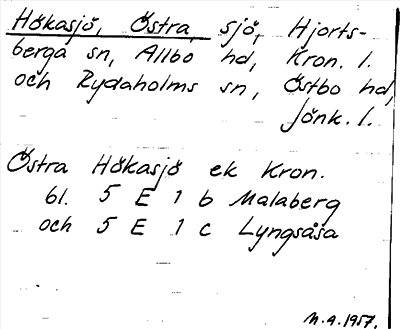 Hökasjö, Östra, sjö, Hjorts-
berga sn, Allbo hd, Kron. l.
och Rydaholms sn, Östbo hd,
Jönk. l.
Östra Hökasjö ek Kron.
bl. 5 E 1 b Malaberg
och 5 E 1 c Lyngsåsa
M.A. 1957.